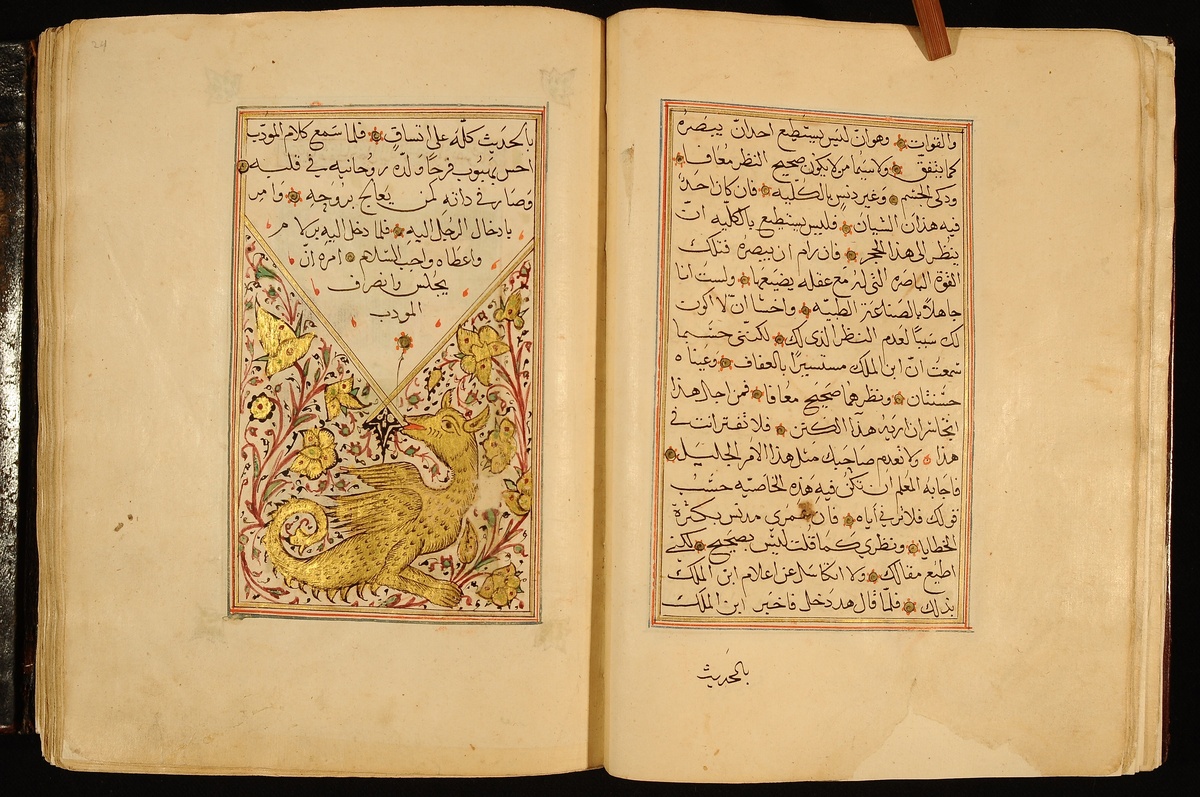 والقوات وهوان ليس يستطيع احدان يبصره
كما يتفق ولاسيما من لا يكون صحيح النظر معافا
وذكى الجسم وغير دنس بالكليه فان كان احد
فيه هذان الشيان فليس يستطيع بالكليه ان
ينظر الى هذا الحجر فان رام ان يبصره فتلك
القوة الباصره التى له مع عقله يضيعها ولست انا
جاهلا بالصناعة الطبيه واخشا ان لا اكون
لك سببا لعدم النظر الذى لك لكننى حسبما
سمعت ان ابن الملك مستسيرا بالعفاف وعيناه
حسنتان ونظرهما صحيح معافا فمن اجل هذا
ان اريه هذا الكنز فلا تفتر انت فى
هذا ولا تعدم صاحبك مثل هذا الامر الجليل
فاجابه المعلم ان تكن فيه هذه الخاصيه حسب
قولك فلا ترنى اياه فان عمرى مدنس بكثرة
الخطايا ونظرى كما قلت ليس بصحيح لكنى
اطيع مقالك ولا اتكاسل عن اعلام ابن الملك
بذلك فلما قال هذا دخل فاخبر ابن الملك
بالحديث
بالحديث كله على انساق فلما سمع كلام المودب
احس بثبوب فرحا ولذه روحانيه فى قلبه
وصار فى ذاته كمن يعالج بروحه وامر
بادخال الرجل اليه فلما دخل اليه برلام
واعطاه واجب السلام امره ان
يجلس وانصرف
المودب
24